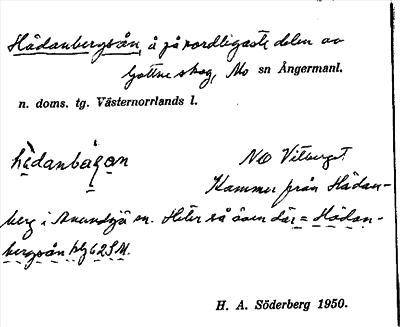 Hädanbergsån, å på nordligaste delen av
Gottne skog, Mo sn Ångermanl.
n. doms. tg. Västernorrlands l.
hädanbärjan
NO Vitberget
Kommer från Hädan-
berg i Anundsjö sn. Heter så även där = Hädan-
bergsån blg 62 S.M.
H. A. Söderberg 1950.